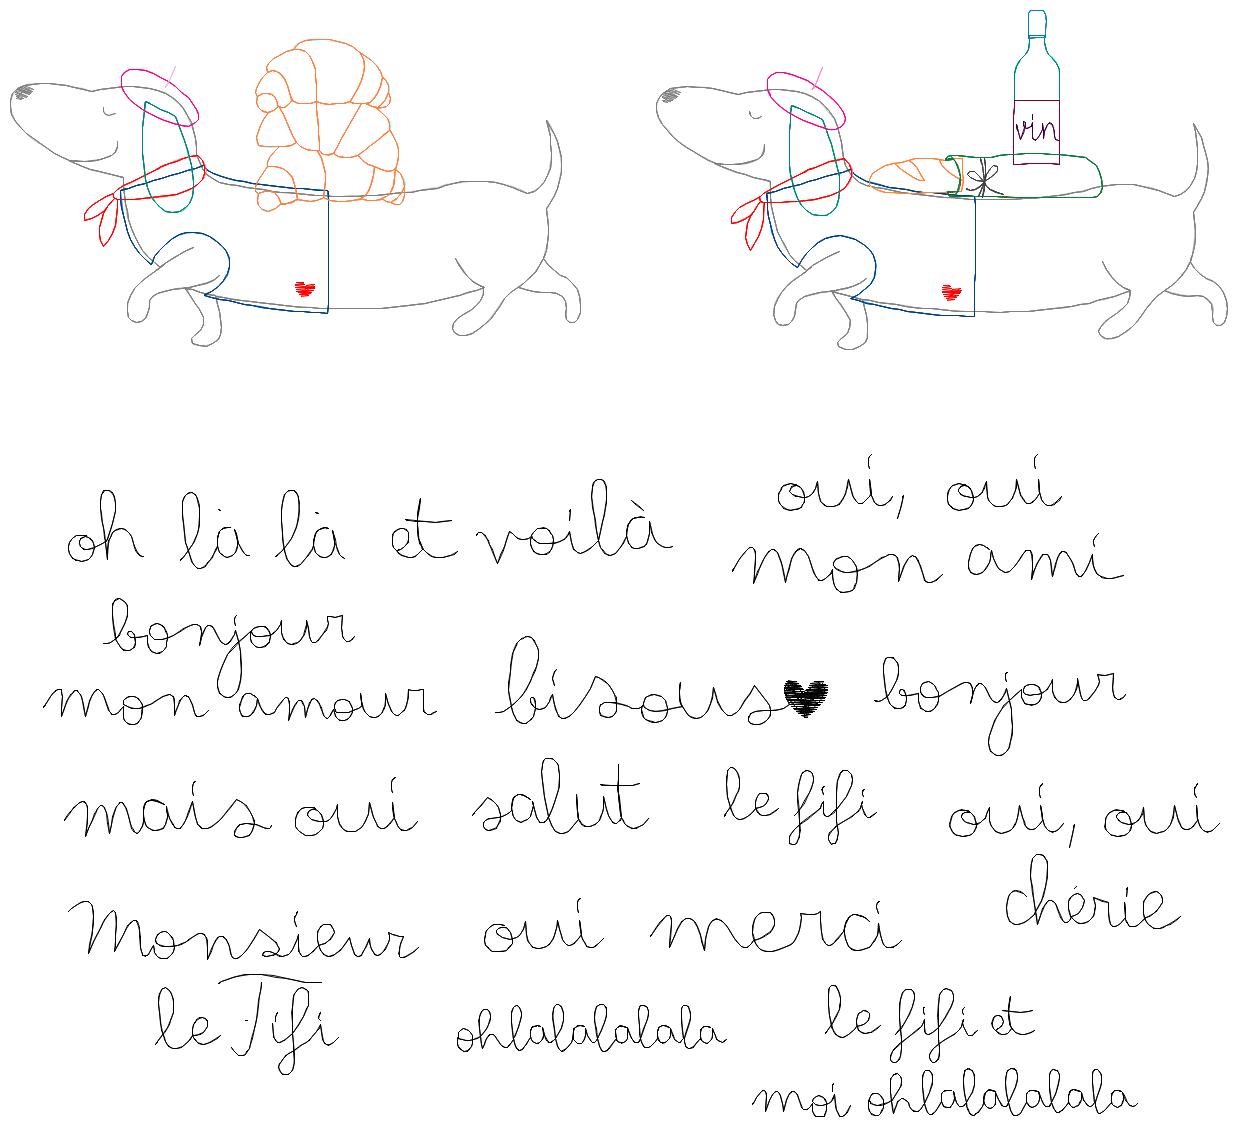 vin
oh là là
et voilà
oui, oui
mon ami
bonjour
mon amour
bisous
bonjour
mais oui
salut
le fifi
oui, oui
chérie
Monsieur
le Fifi
oui
merci
ohlalalalala
le fifi et
moi ohlalalalala